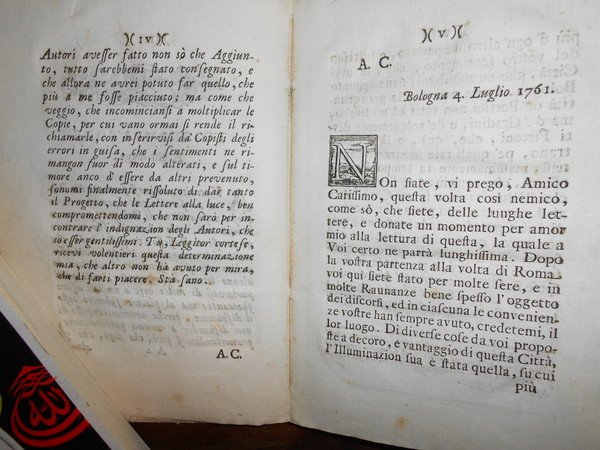 )( IV )(
Autori avesser fatto non sò che Aggiun-
to, tutto sarebbemi stato consegnato, e
che allora ne avrei potuto far quello, che
più a me fosse piacciuto; ma come che
veggio, che incominciansi a moltiplicar le
Copie, per cui vano ormai si rende il ri-
chiamarle, con inserirvisi da Copisti degli
errori in guisa, che i sentimenti ne ri-
mangon fuor di modo alterati, e sul ti-
more anco d'essere da altri prevenuto,
sonomi finalmente rissoluto di dar tanto
il Progetto, che le Lettere alla luce, ben
compromettendomi, che non sarò per in-
contrare l'indignazion degli Autori, che
sò esser gentilissimi. Tu, Leggitor cortese,
ricevi volentieri questa determinazione
mia, che altro non hà avuto per mira,
che di farti piacere. Sta sano.
A. C.
)( V )(
A. C.
Bologna 4. Luglio 1761.
NOn siate, vi prego, Amico
Carissimo, questa volta così nemico,
come sò, che siete, delle lunghe let-
tere, e donate un momento per amor
mio alla lettura di questa, la quale a
Voi certo ne parrà lunghissima. Dopo
la vostra partenza alla volta di Roma,
voi qui siete stato per molte sere, e in
molte Raunanze bene spesso l'oggetto
dei discorsi, ed in ciascuna le convenien-
ze vostre han sempre avuto, credetemi, il
lor luogo. Di diverse cose da voi propo-
ste a decoro, e vantaggio di questa Città,
l'Illuminazion sua è stata quella, su cui
più
الله